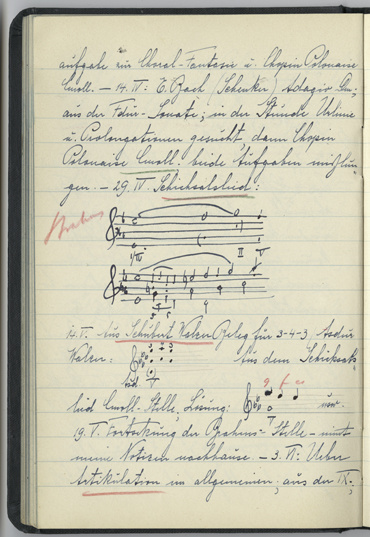 aufgabe zur Choral-Fantasie u. Chopin Polonaise
Cmoll. – 14. IV.: E. Bach (Schenker) Adagio
aus der Fdur-Sonate; in der Stunde Urlinie
u. Prolongationen gesucht, dann Chopin
Polonaise Cmoll: beide Aufgaben mißlun-
gen. – 29. IV. Schicksalslied:
Brahms
II V
14. V. Aus Schubert Walzer Beleg für 3-4-3, Asdur
Walzer: Aus dem Schicksals-
lied Cmoll-Stelle, Lösung: usw.
19. V. Fortsetzung der Brahms-Stelle – nimt
meine Notizen nachhause. – 3. VI: Ueber
Artikulation im allgemeinen; aus der IX.